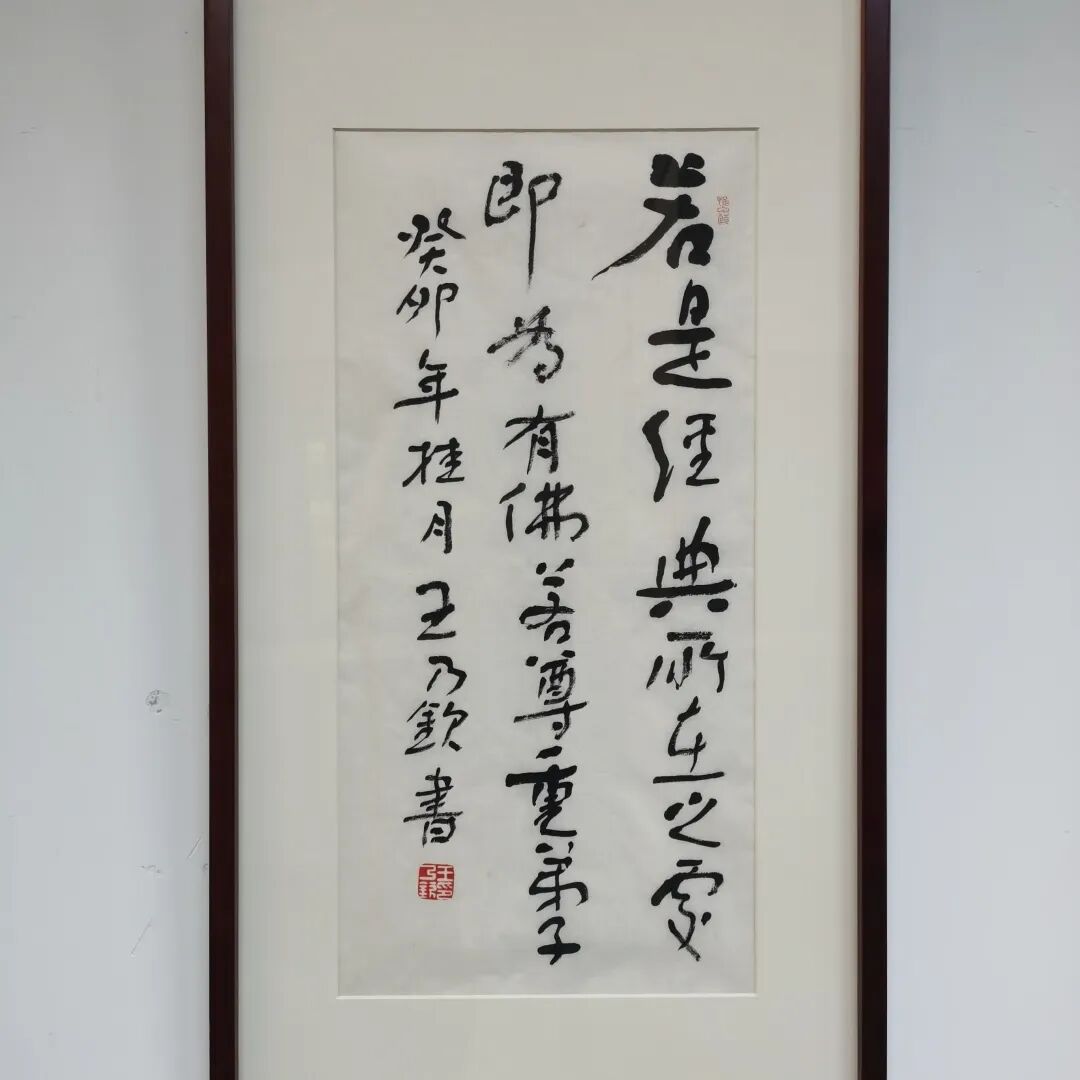 若是經典所在之處
即為有佛若尊重弟子
癸卯年桂月王乃欽書
王印乃欽